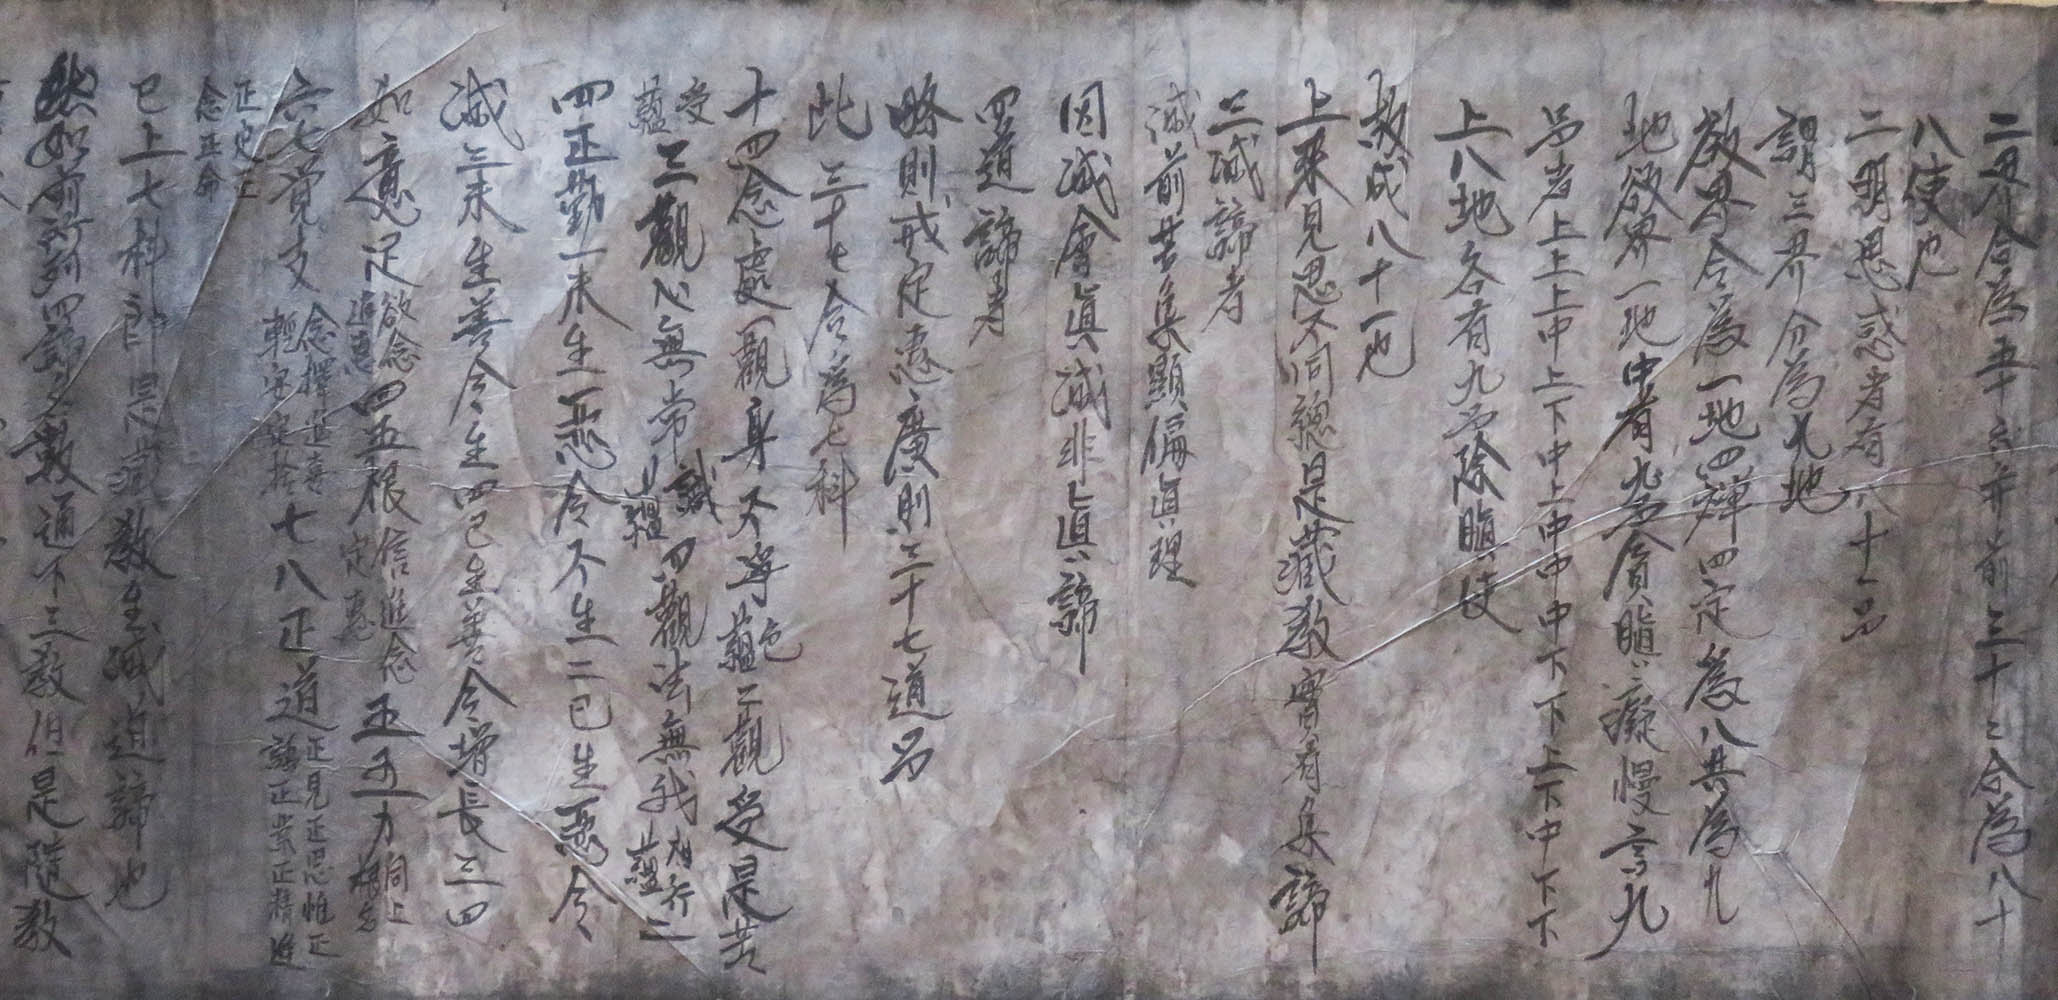 二界合為五十六并前三十二合為八十
八使也
二明思惑者有八十一品
謂三界分為九地
欲界合為一地四禪四定為八共為九
地欲界一地中有九品貪瞋癡慢言九
品者上上上中上下中上中中中下下上下中下下
上八地各有九品除瞋使
故成八十一也
上來見思不同總是藏教實有集諦
三滅諦者
滅前苦集顯偏真理
因滅會真滅非真諦
四道諦者
略則戒定惠廣則三十七道品
此三十七合為七科
十四念處一觀身不淨色蘊二觀受是苦
受蘊三觀心無常識蘊四觀法無我想行蘊二
四正勤一未生惡令不生二已生惡令
滅三未生善令生四已生善令增長三四
如意足欲念進惠四五根信進念定惠五五力同上根名
六七覺支念擇進喜輕安定捨七八正道正見正思惟正語正業正精進
正定正念正命
已上七科即是藏教生滅道諦也
然如前所列四諦之數通下三教但是隨教